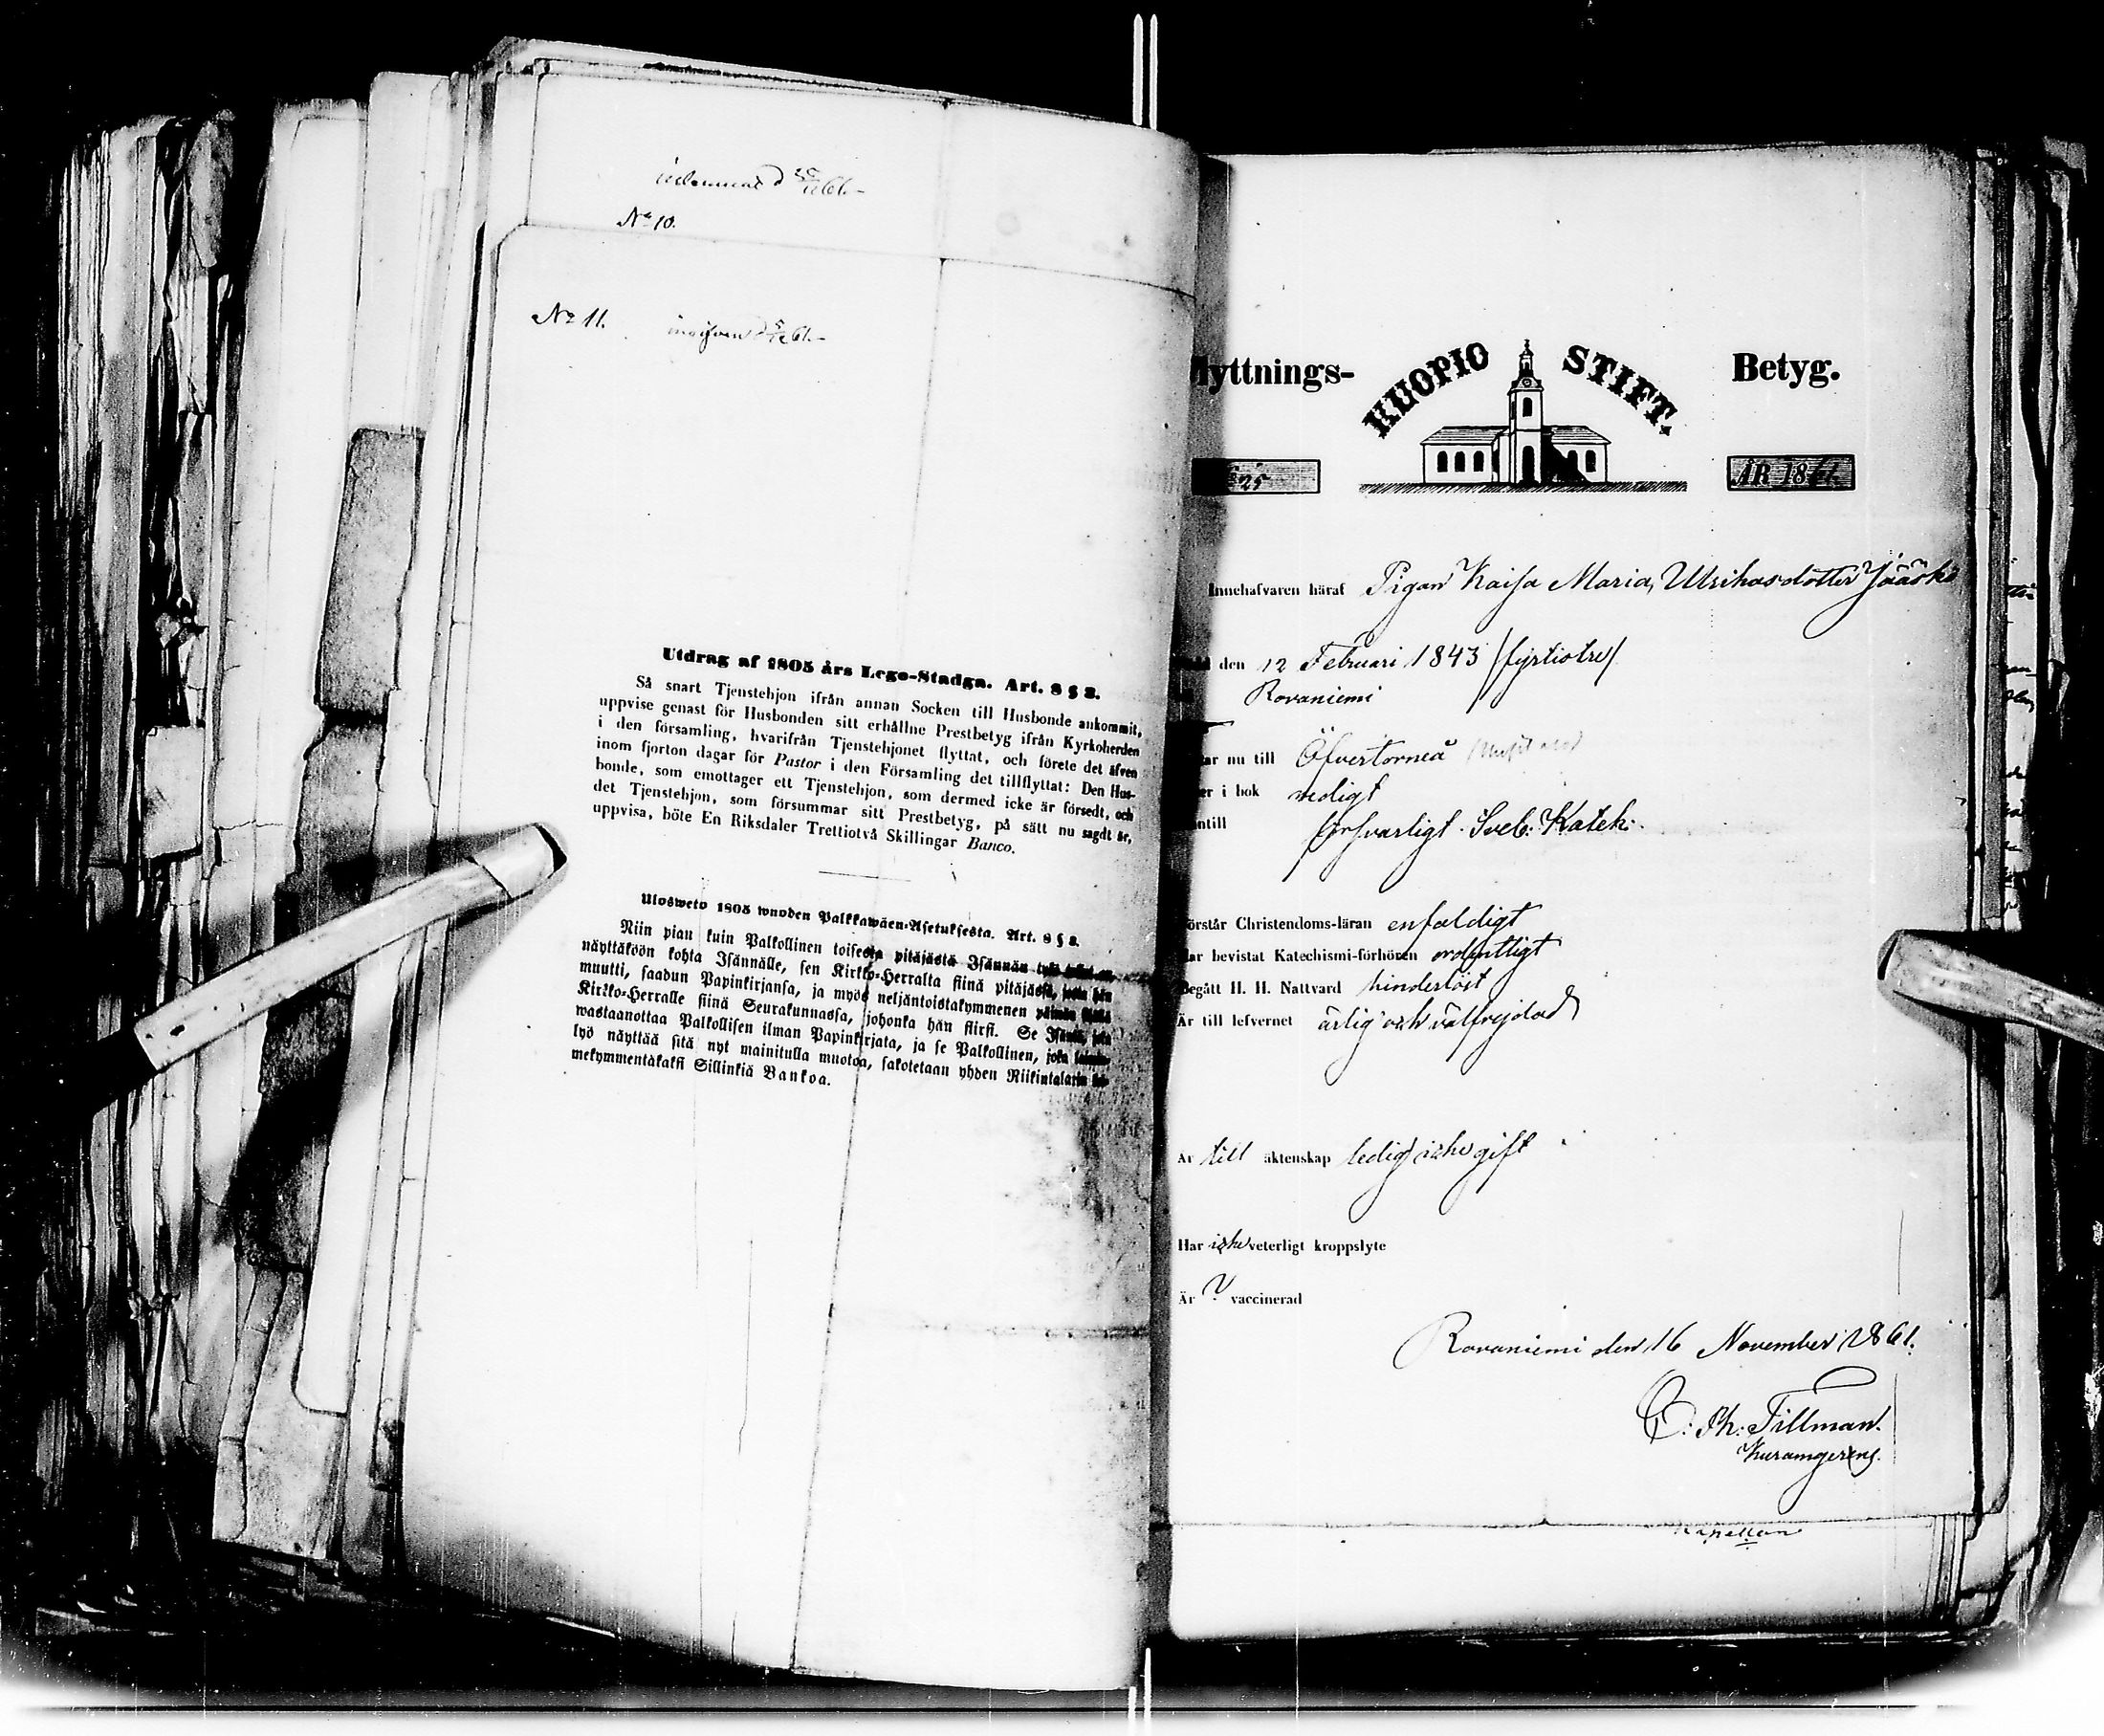 No 10.
No 11.
Utdrag af 1805 års Lego-Stadga. Art. 8 § 2.
Så snart Tjenstehjon ifrån annan Socken till Husbonde ankommit,
uppvise genast för Husbonden sitt erhållne Prestbetyg ifrån Kyrkoherden
i den församling, hvarifrån Tjenstehjonet flyttat, och förete det äfven
inom fjorton dagar för Pastor i den Församling det tillflyttat: Den Hus-
bonde, som emottager ett Tjenstehjon, som dermed icke är försedt, och
det Tjenstehjon, som försummar sitt Prestbetyg, på sätt nu sagdt är,
uppvisa, böte En Riksdaler Trettiotvå Skillingar Banco.
Ulosweto 1805 wuoden Palkkawäen-Asetuksesta. Art. 8 § 2.
Niin pian kuin Palkollinen toisesta pitäjästä Isännän
näyttäköön kohta Isännälle, sen Kirkko-Herralta siinä pitäjässä, josta hän
muutti, saadun Papinkirjansa, ja myös neljäntoistakymmenen päiwän sisällä
Kirkko-Herralle siinä Seurakunnassa, johonka hän siirsi. Se Isäntä, joka
wastaanottaa Palkollisen ilman Papinkirjata, ja se Palkollinen, joka laimin-
lyö näyttää sitä nyt mainitulla muotoa, sakotetaan yhden Riikintalarin kol-
mekymmentäkaksi Sillinkiä Bankoa.
lyttnings- KUOPIO STIFT. Betyg.
25 ÅR 1861
Innehafvaren häraf Pigan Kaisa Maria, Ulriksdotter Jääskö
den 12 Februari 1843 /fyrtiotre/
Rovaniemi
ar nu till Öfvertorneå
er i bok redigt
ntill försvarligt. Sveb: Katek:
örstår Christendoms-läran enfaldigt
ar bevistat Katechismi-förhören ordentligt
Begått H. H. Nattvard hinderlöst
Är till lefvernet ärlig och välfrejdad
Är till äktenskap ledig icke gift
Har icke veterligt kroppslyte
Är ? vaccinerad
Rovaniemi den 16 November 1861.
C: Ph: Tillman.
Kapellan